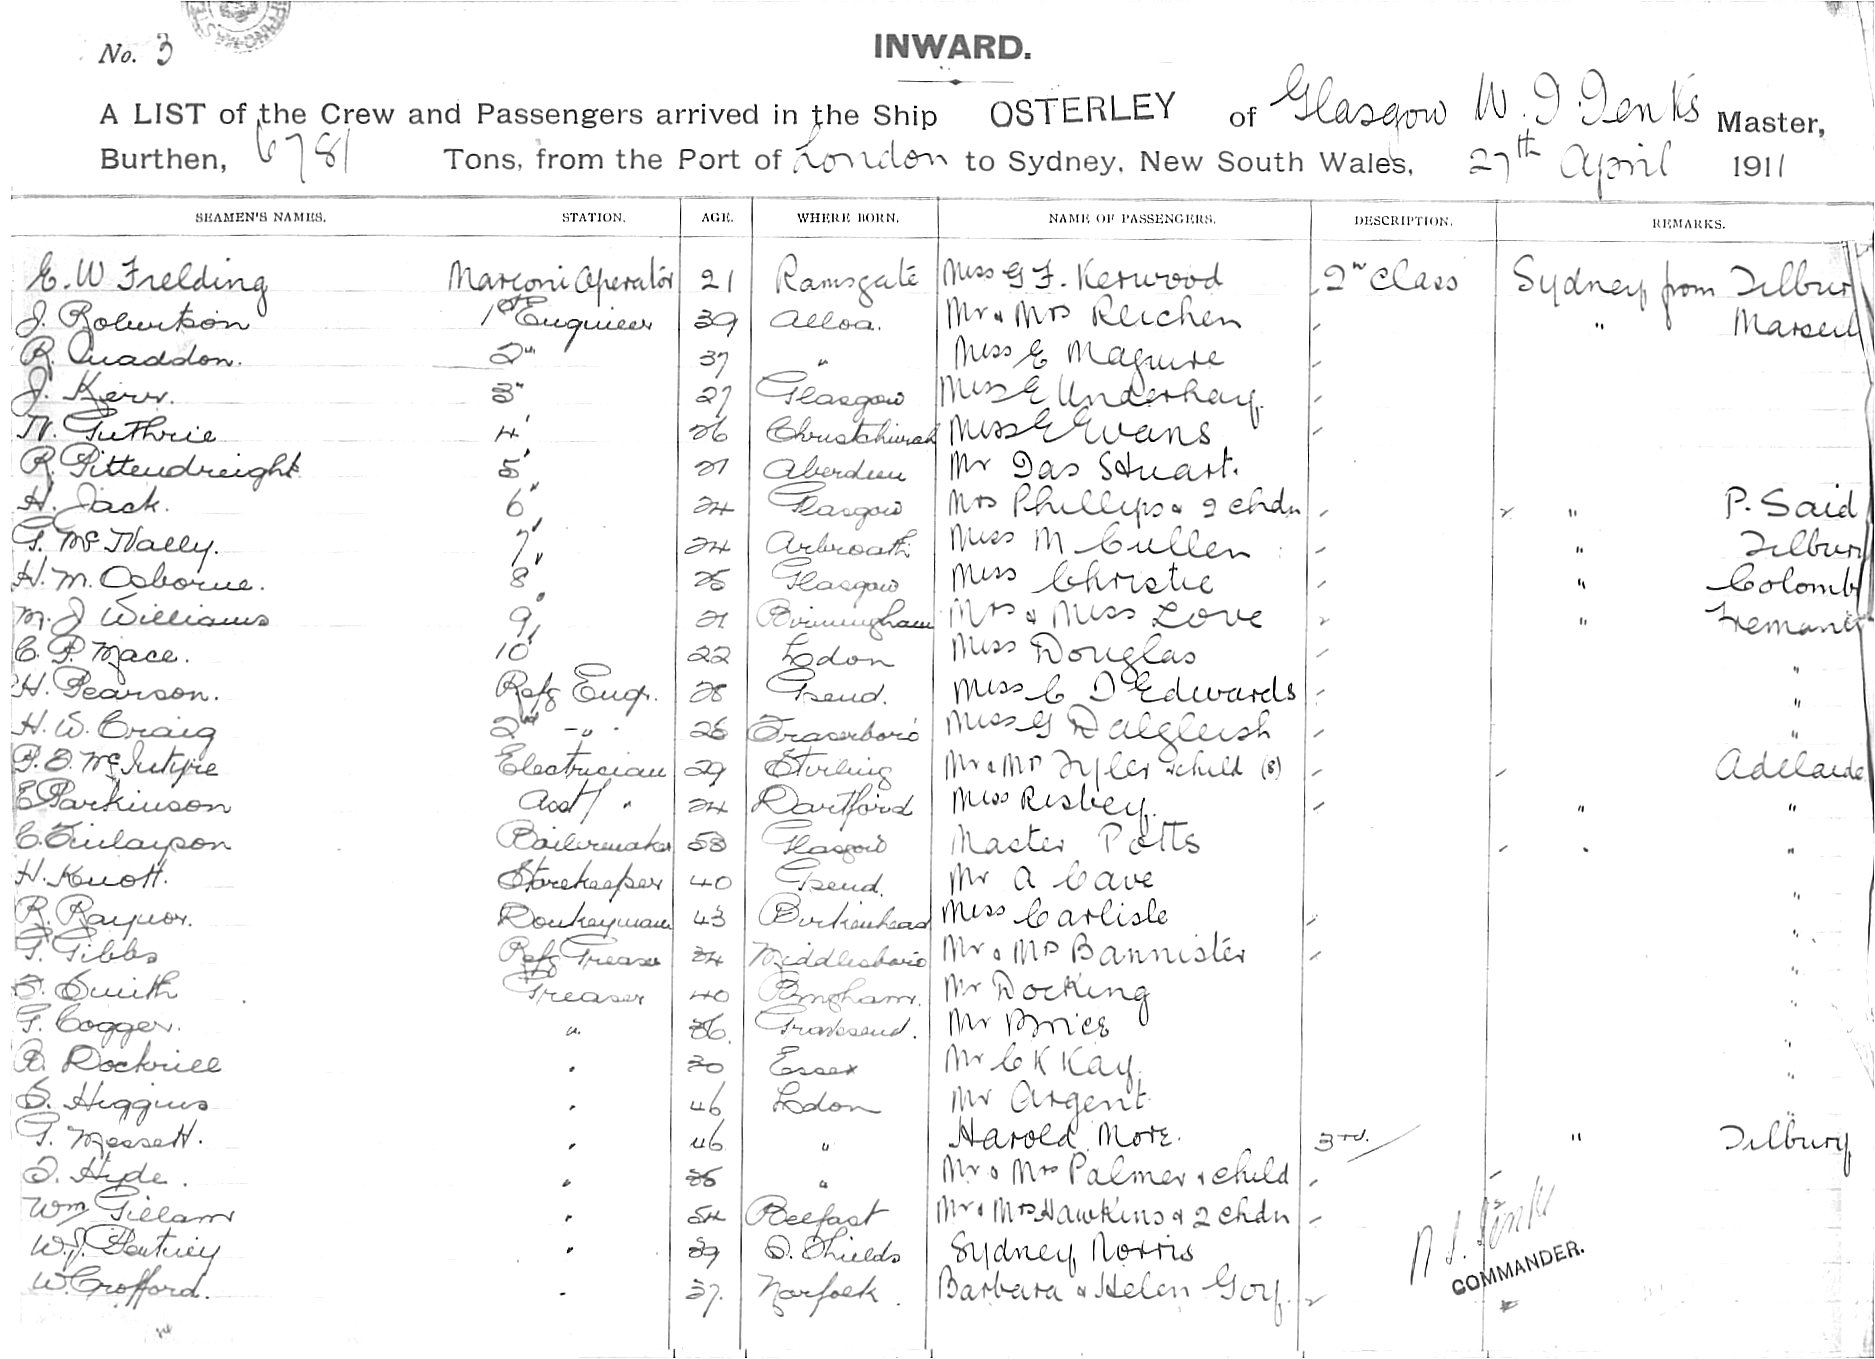 No. 3
INWARD.
A LIST of the Crew and Passengers arrived in the Ship OSTERLEY of Glasgow W. J. Jenks Master,
Burthen, 6781 Tons, from the Port of London to Sydney, New South Wales, 27th April 1911
SEAMEN'S NAMES. STATION. AGE. WHERE BORN. NAME OF PASSENGERS. DESCRIPTION. REMARKS.
E. W Frelding Marconi Operator 21 Ramsgate Miss G F. Kerwood 2nd Class Sydney from Tilbury
J. Robertson 1st Engineer 39 Alloa. Mr & Mrs Reichen " Marseil
R. Quaddon. 2" 37 " Miss E Maguire
J. Kerr. 3" 27 Glasgow Miss E Underhay.
W. Guthrie 4' 26 Christchurch Miss E Evans
R. Pittendreight 5' 27 Aberdeen Mr Jas Stuart.
H. Jack. 6" 24 Glasgow Mrs Phillips & 2 chdn " P. Said
G. McNally. 7" 24 Arbroath Miss M Cullen " Tilbury
H. M. Osborne. 8" 25 Glasgow Miss Christie " Colomb
M. J Williams 9' 21 Birmingham Mrs & Miss Love " Fremantle
C. P. Mace. 10' 22 Lodon Miss Douglas "
H. Pearson. Refg Engr. 28 Gsend. Miss C D Edwards "
H. W. Craig 2nd -"- 26 Fraserboro Miss G Dalgleish "
P. D. McIntyre Electrician 29 Stirling Mr & Mrs Tyler & child (8) Adelaide
E Parkinson Asst " 24 Dartford Miss Risbey. " "
C. Finlayson Boilermaker 53 Glasgow Master Potts " "
H. Knott. Storekeeper 40 Gsend. Mr A Cave "
R. Raynor. Donkeyman 43 Birkenhead Miss Carlisle "
G. Gibbs Refg Greaser 34 Middlesboro Mr & Mrs Bannister "
S. Smith Greaser 40 Bmgham. Mr Docking "
G. Cogger. " 36. Gravesend. Mr Brice "
A. Dockrill " 30 Essex Mr C K Kay. "
S. Higgins " 46 Lodon Mr Argent "
G. Messett. " 46 " Harold More. 3rd. " Tilbury
S. Hyde. " 35 " Mr & Mrs Palmer & child
Wm Gillam " 54 Belfast Mr & Mrs Hawkins & 2 chdn
W. J. " 39 S. Shields Sydney Norris
W. Crofford. " 37. Norfolk. Barbara & Helen Goy.
W. J. Jenks
COMMANDER.